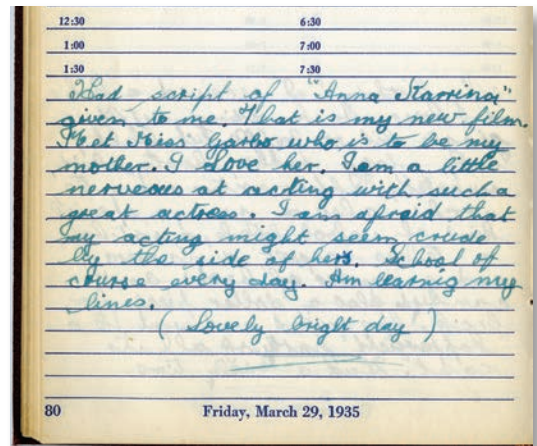 12:30 6:30
1:00 7:00
1:30 7:30
Had script of "Anna Karrina"
given to me. That is my new film.
Met Miss Garbo who is to be my
mother. I love her. I am a little
nerveous at acting with such a
great actress. I am afraid that
my acting might seem crude
by the side of hers. School of
course every day. Am learnig my
lines.
( Lovely bright day )
80 Friday, March 29, 1935